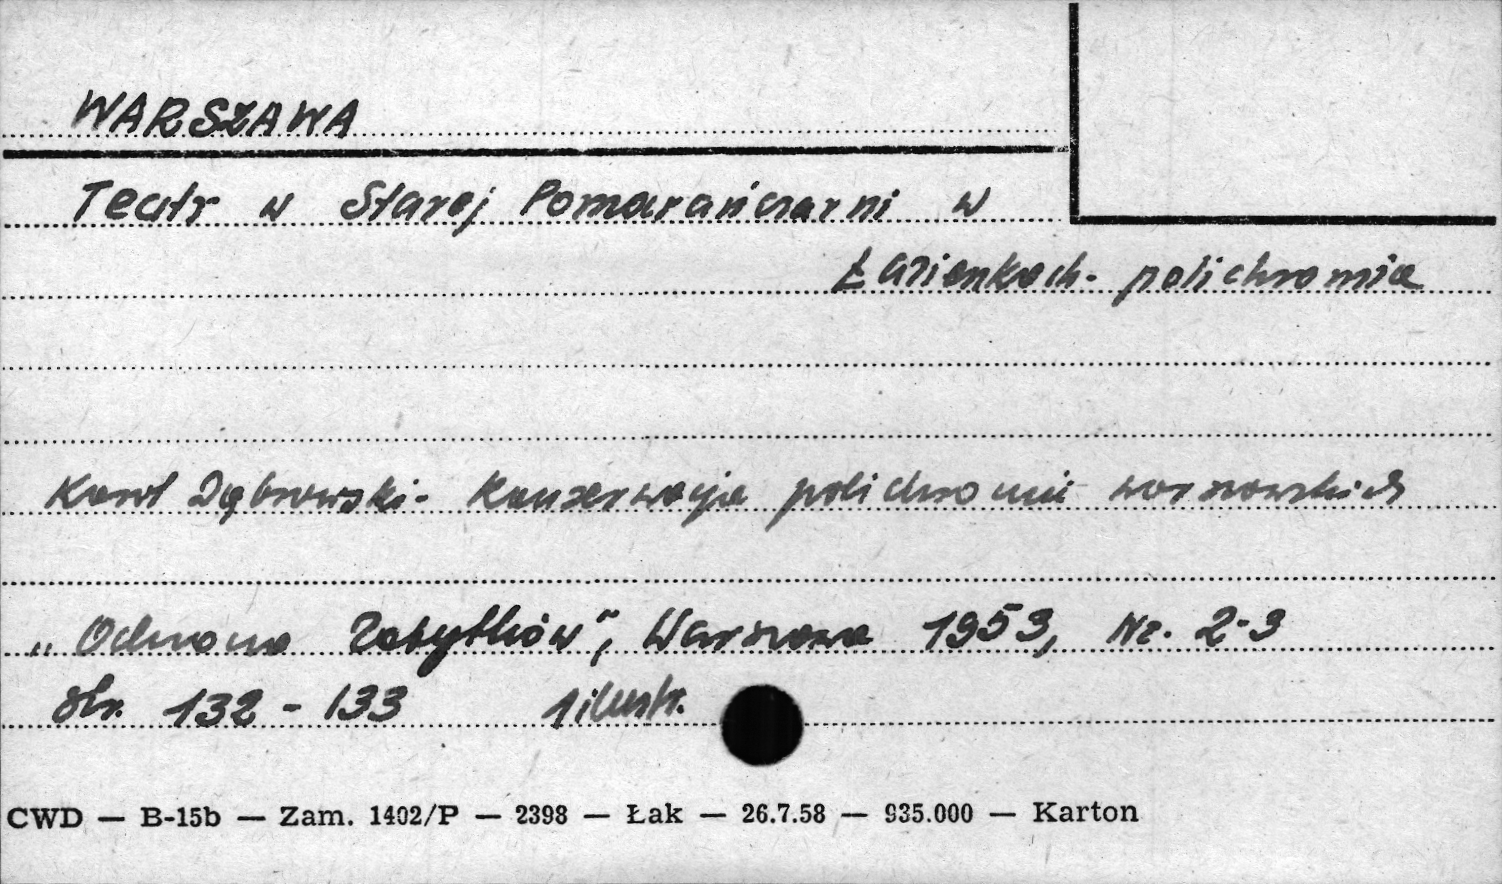 WARSZAWA
Teatr w Starej Pomarańczarni w
Łazienkach - polichromia
Karol Dąbrowski - Konserwacja polichromii warszawskich
„Ochrona Zabytków", Warszawa 1953, Nr. 2-3
str. 132 - 133 1 ilustr.
CWD — B-15b — Zam. 1402/P — 2398 — Łak — 26.7.58 — 935.000 — Karton